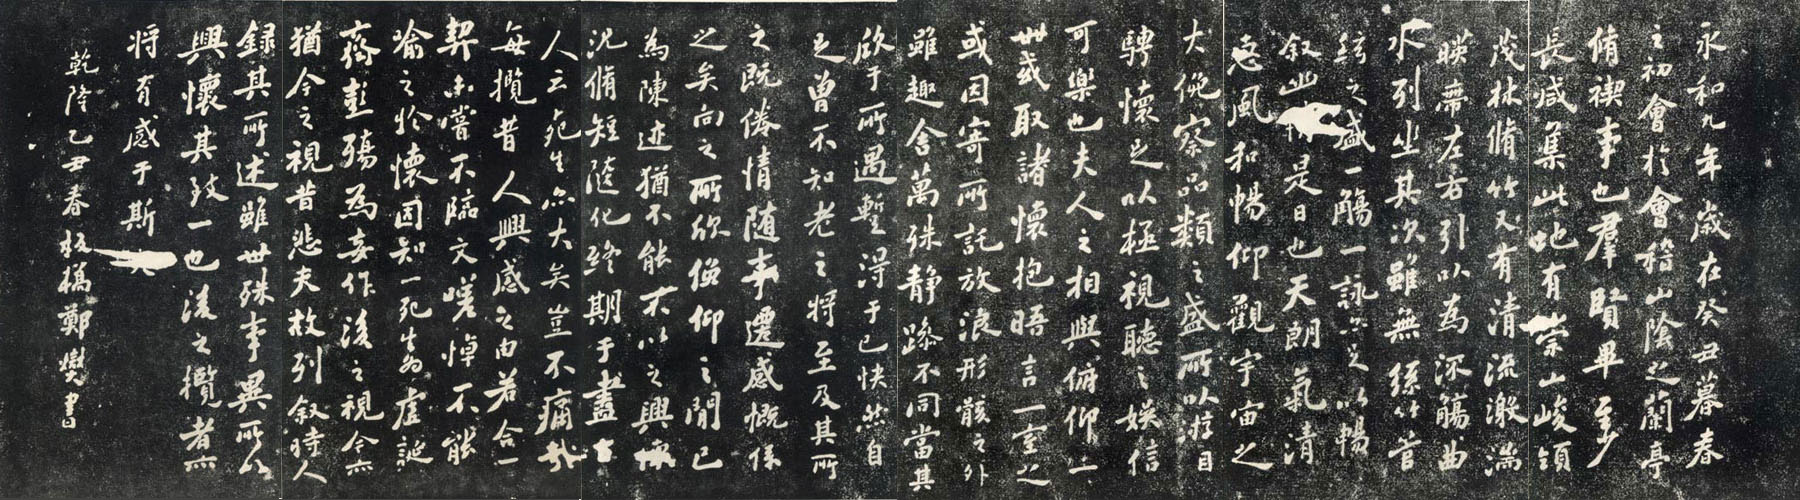 永和九年歲在癸丑暮春
之初會於會稽山陰之蘭亭
脩禊事也羣賢畢至少
長咸集此地有崇山峻領
茂林脩竹又有清流激湍
暎帶左右引以為流觴曲
水列坐其次雖無絲竹管
絃之盛一觴一詠亦足以暢
叙幽情是日也天朗氣清
惠風和暢仰觀宇宙之
大俛察品類之盛所以游目
騁懷足以極視聽之娛信
可樂也夫人之相與俯仰一
世或取諸懷抱晤言一室之
或因寄所託放浪形骸之外
雖趣舍萬殊静躁不同當其
欣于所遇暫得于己快然自
足曾不知老之將至及其所
之既倦情随事遷感慨係
之矣向之所欣俛仰之間已
為陳迹猶不能不以之興懷
況脩短隨化終期于盡古
人云死生亦大矣豈不痛哉
每攬昔人興感之由若合一
契未嘗不臨文嗟悼不能
喻之於懷固知一死生為虛誕
齊彭殤為妄作後之視今亦
猶今之視昔悲夫故列叙時人
録其所述雖世殊事異所以
興懷其致一也後之攬者亦
将有感于斯文
乾隆乙丑春板橋鄭燮書